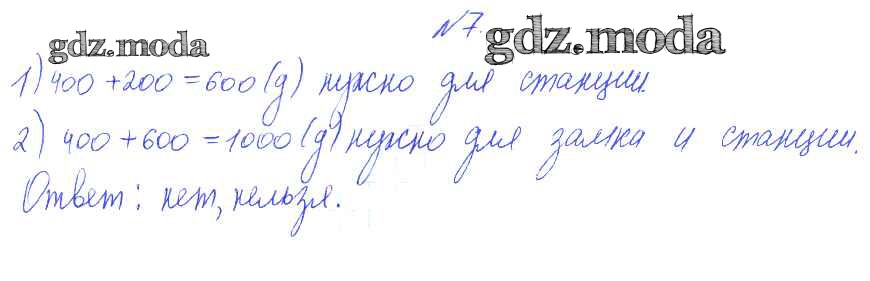 №7.
gdz.moda gdz.moda
1) 400 + 200 = 600 (д) нужно для станции.
2) 400 + 600 = 1000 (д) нужно для замка и станции.
Ответ: нет, нельзя.